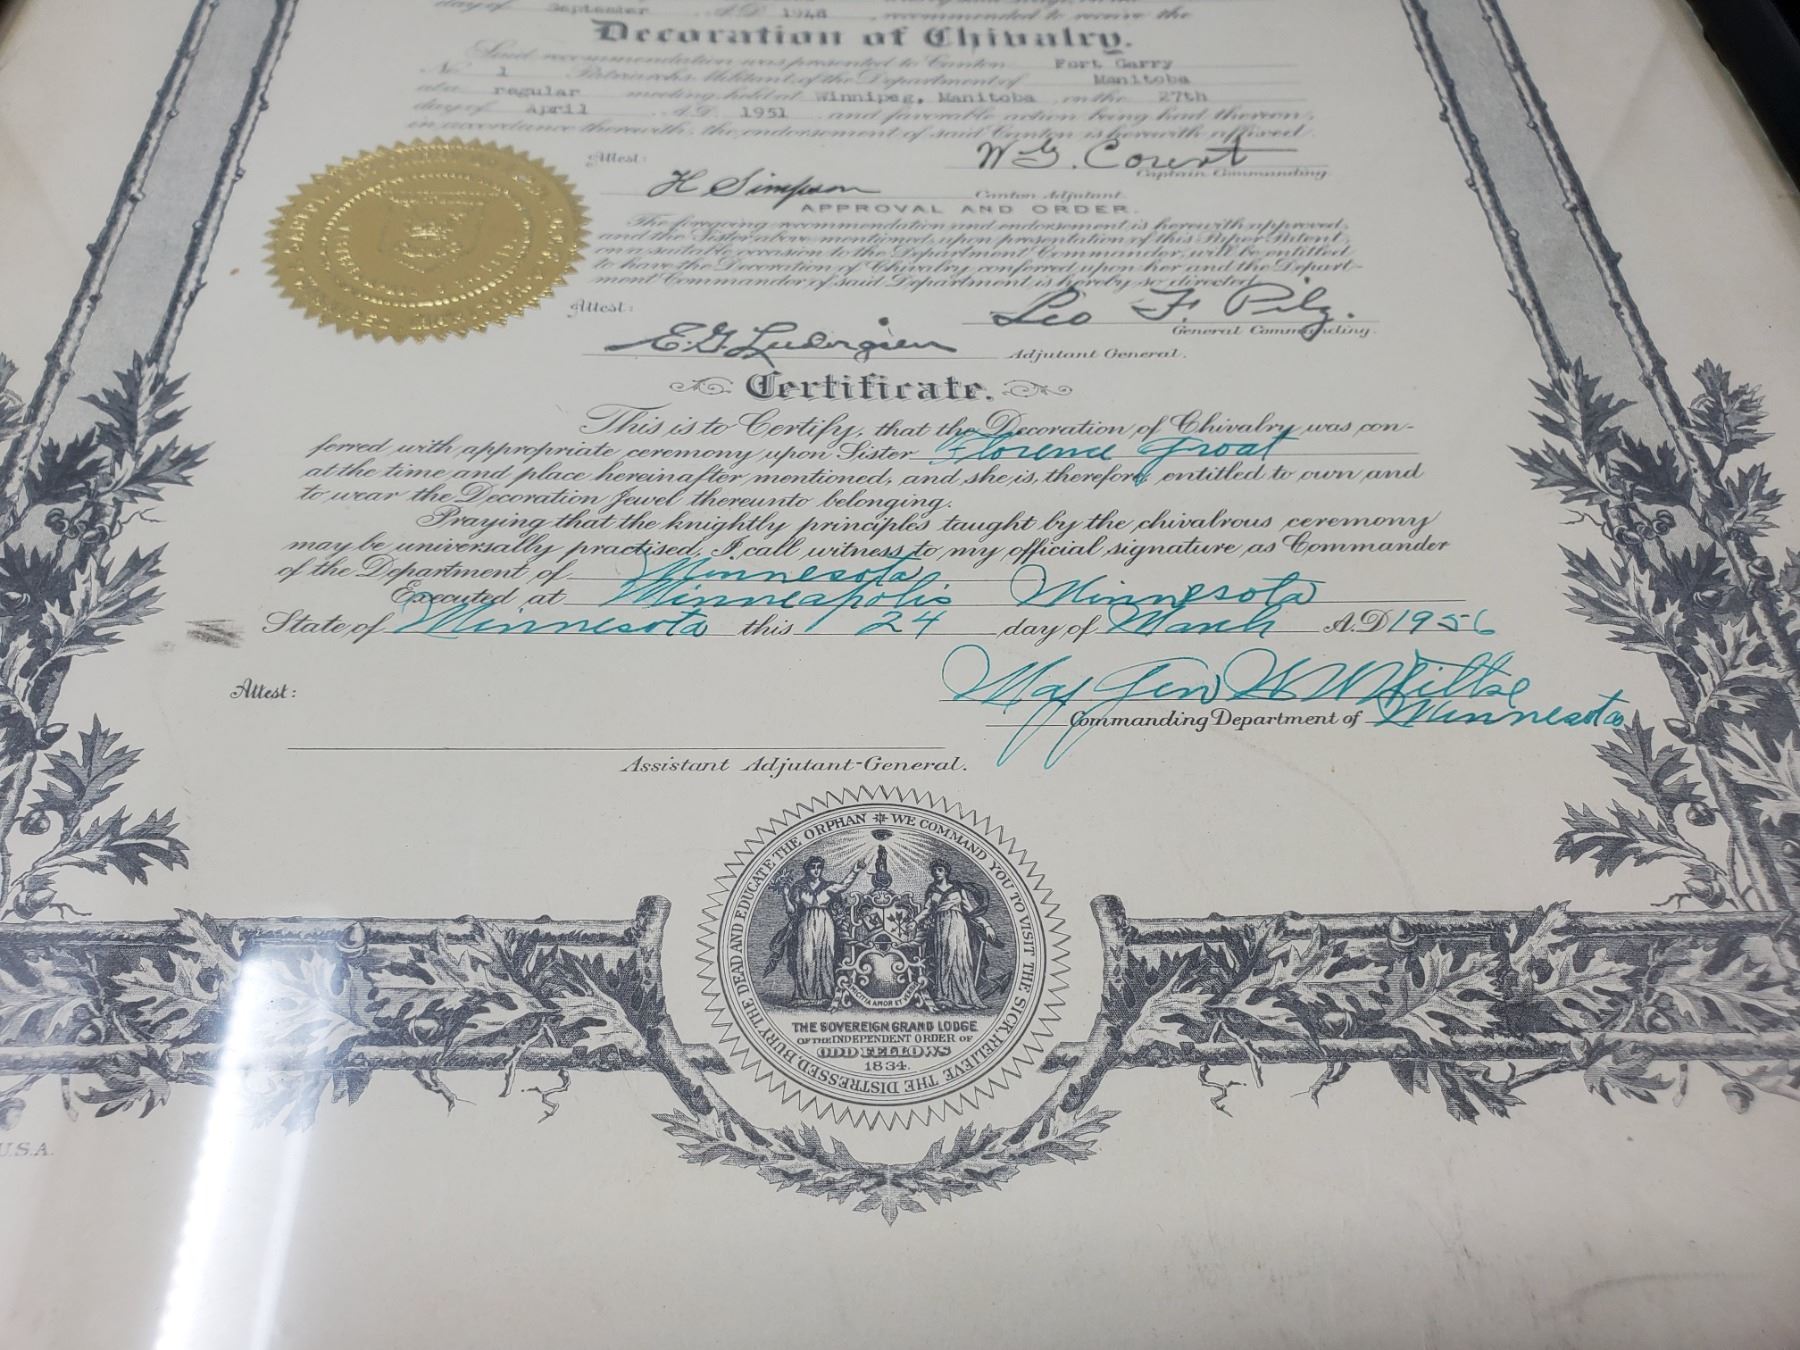 day of September A.D. 1948, recommended to receive the
Decoration of Chivalry.
Said recommendation was presented to Canton Fort Garry
No. 1 Patriarchs Militant of the Department of Manitoba
at a regular meeting held at Winnipeg, Manitoba, on the 27th
day of April A.D. 1951 and favorable action being had thereon,
in accordance therewith, the endorsement of said Canton is herewith affixed.
Attest: W G. Court
Captain Commanding
H Simpson
Canton Adjutant.
APPROVAL AND ORDER.
The foregoing recommendation and endorsement is herewith approved,
and the Sister above mentioned, upon presentation of this Paper Patent,
on a suitable occasion to the Department Commander, will be entitled
to have the Decoration of Chivalry conferred upon her and the Depart-
ment Commander of said Department is hereby so directed.
Attest: Leo F. Pilz.
General Commanding.
E. G.
Adjutant General.
Certificate.
This is to Certify, that the Decoration of Chivalry was con-
ferred with appropriate ceremony upon Sister Florence Groat
at the time and place hereinafter mentioned, and she is, therefore, entitled to own and
to wear the Decoration Jewel thereunto belonging.
Praying that the knightly principles taught by the chivalrous ceremony
may be universally practised, I call witness to my official signature as Commander
of the Department of Minnesota
Executed at Minneapolis Minnesota
State of Minnesota this 24 day of March A.D. 1956
Attest: Maj Gen W W
Commanding Department of Minnesota
Assistant Adjutant-General.
WE COMMAND YOU TO VISIT THE SICK, RELIEVE THE DISTRESSED, BURY THE DEAD AND EDUCATE THE ORPHAN
AMICITIA AMOR ET VERITAS
THE SOVEREIGN GRAND LODGE
OF THE INDEPENDENT ORDER OF
ODD FELLOWS
1834.
U.S.A.